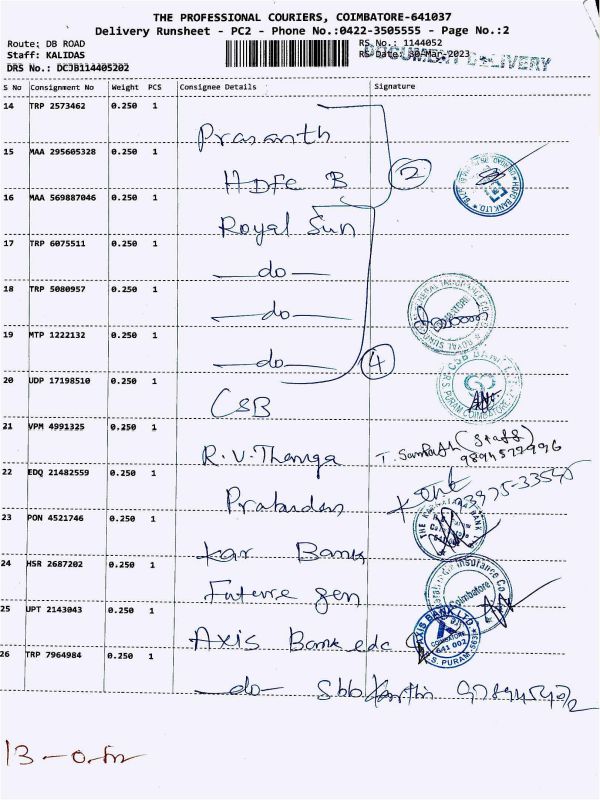 THE PROFESSIONAL COURIERS, COIMBATORE-641037
Delivery Runsheet - PC2 - Phone No.:0422-3505555 - Page No.:2
Route: DB ROAD
RS No.: 1144052
Staff: KALIDAS
RS Date: 30-Mar-2023
DOCUMENT DELIVERY
DRS No.: DCJB114405202
S No Consignment No Weight PCS Consignee Details Signature
14 TRP 2573462 0.250 1
Prasanth
15 MAA 295605328 0.250 1
HDFC B
2
HDFC BANK LTD.
16 MAA 569887046 0.250 1
Royal Sun
17 TRP 6075511 0.250 1
do
18 TRP 5080957 0.250 1
do
19 MTP 1222132 0.250 1
do
4
20 UDP 17198510 0.250 1
CSB
CSB BANK
21 VPM 4991325 0.250 1
R.V. T. Sampath (Staff)
22 EDQ 21482559 0.250 1
23 PON 4521746 0.250 1
Kar Bank
24 HSR 2687202 0.250 1
Future Gen
25 UPT 2143043 0.250 1
Axis Bank edc
AXIS BANK LTD.
COIMBATORE
641 002
R.S. PURAM
26 TRP 7964984 0.250 1
do
13